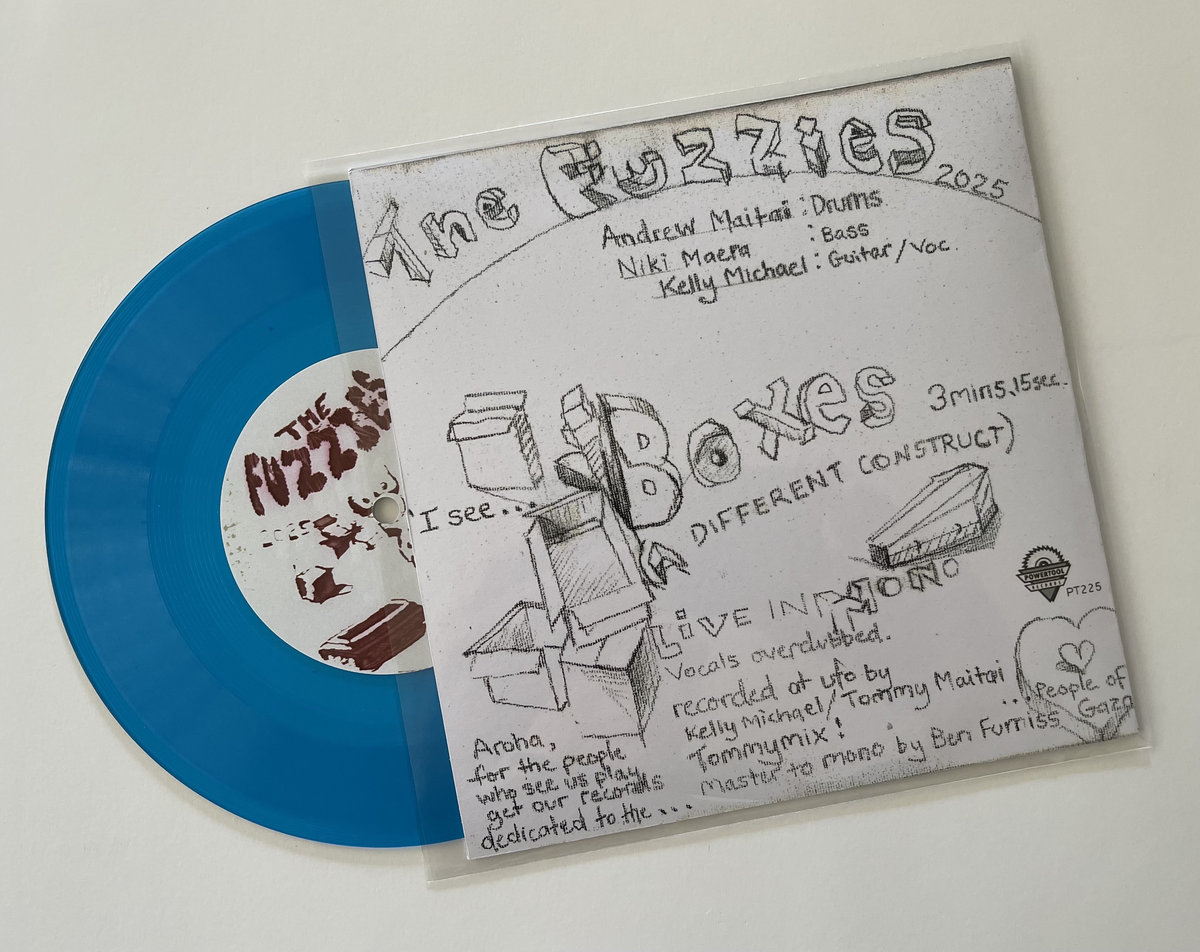 The Fuzzies 2025
Andrew Maitai : Drums
Niki Maera : Bass
Kelly Michael : Guitar/Voc.
Boxes 3mins.15sec.
I see...
(A DIFFERENT CONSTRUCT)
LIVE IN MONO
Vocals overdubbed.
recorded at ufo by
Kelly Michael/Tommy Maitai
Tommymix!
Master to mono by Ben Furniss
Aroha,
for the people
who see us play
get our records
dedicated to the...
...people of
Gaza
POWERTOOL
RECORDS
PT225
THE
FUZZIES
2025